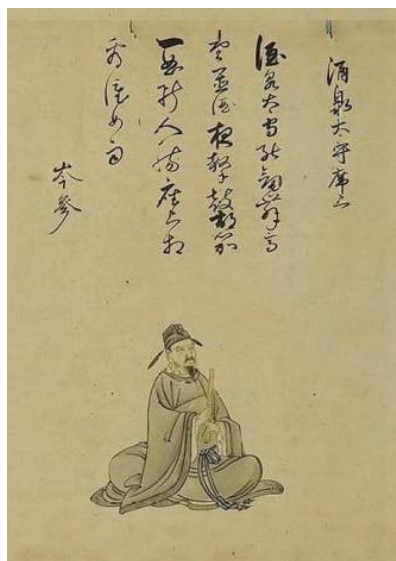 酒泉大守席上
酒泉太守能劔舞高
堂置酒夜擊鼓胡笳
一曲断人腸座上相
看淚如雨
岑參